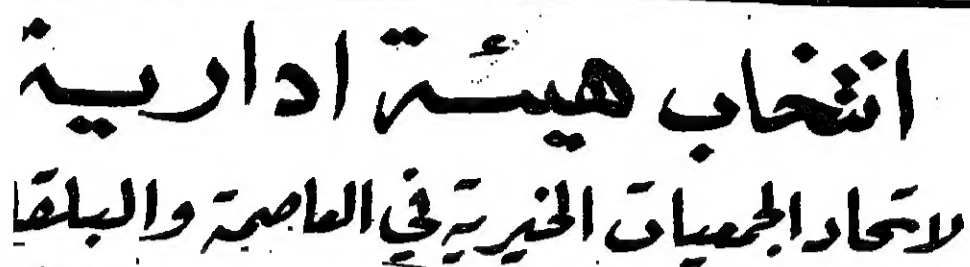 انتخاب هيئة ادارية
لاتحاد الجمعيات الخيرية في العاصمة والبلقا